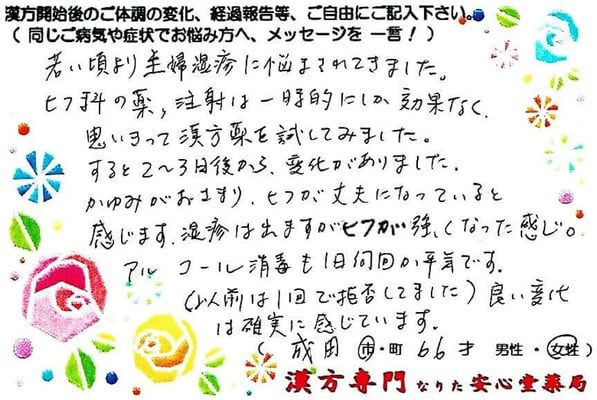 漢方開始後のご体調の変化、経過報告等、ご自由にご記入下さい。
(同じご病気や症状でお悩み方へ、メッセージを 一言!)
若い頃より主婦湿疹に悩まされてきました。
ヒフ科の薬,注射は一時的にしか効果なく、
思いきって漢方薬を試してみました。
すると2〜3日後から、変化がありました。
かゆみがおさまり、ヒフが丈夫になっていると
感じます、湿疹は出ますがヒフが強くなった感じ。
アルコール消毒も1日何回か平気です。
(以前は1回で拒否してました)良い変化
は確実に感じています。
(成田 市・町 66才 男性・女性)
漢方専門 なりた 安心堂薬局